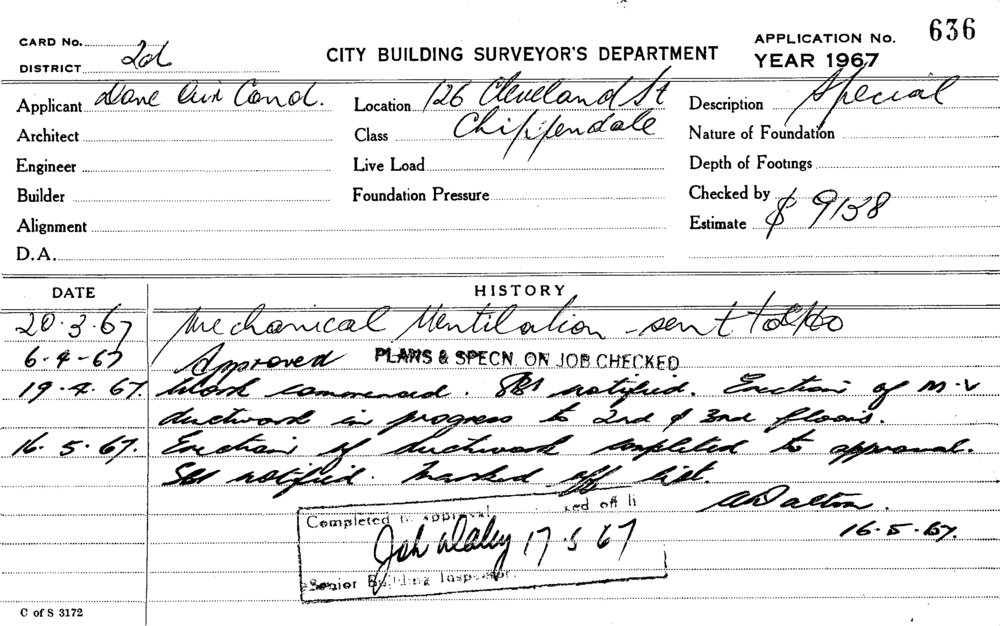 CARD No.
CITY BUILDING SURVEYOR'S DEPARTMENT
APPLICATION No. 636
DISTRICT 2d
YEAR 1967
Applicant Dane Air Cond. Location 126 Cleveland St Description Special
Architect Class Chippendale Nature of Foundation
Engineer Live Load Depth of Footings
Builder Foundation Pressure Checked by
Alignment Estimate $ 9138
D.A.
DATE HISTORY
20.3.67 Mechanical Ventilation - sent to
6-4-67 Approved PLANS & SPECN. ON JOB CHECKED
19.4.67. Work commenced. SBI notified. Erection of M.V
ductword in progress to 2nd & 3rd floors.
16.5.67. Erection of ductword completed to approval.
SBI notified. Marked off list.
Dalton.
16.5.67.
Completed to approval ked off li
Daley 17 5 67
Senior Building Inspector.
C of S 3172